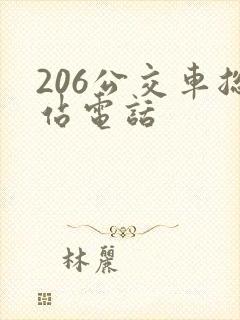 206公交車总
佔電話
林麗